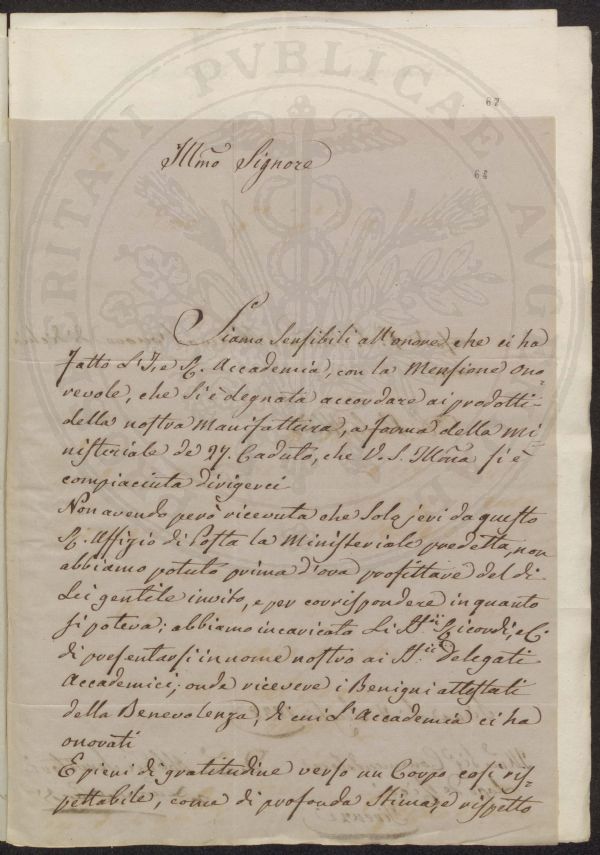 VERITATI PVBLICAE AVG
67
Ill͞mo Signore
64
Siamo Sensibili all'onore, che ci ha
fatto L'I. e R. Accademia, con la Menzione Ono=
revole, che Si è degnata accordare ai prodotti
della nostra Manifattura, a forma della Mi=
nisteriale de 27. Caduto, che V. S. Ill͞ma si è
compiaciuta dirigerci
Non avendo però ricevuta che Solo jeri da questo
R. Uffizio di Posta la Ministeriale predetta, non
abbiamo potuto prima d'ora profittare del di
Lei gentile invito, e per corrispondere in quanto
si poteva; abbiamo incaricato Li Ricordi, e C.
di presentarsi in nome nostro ai Delegati
Accademici, onde ricevere i Benigni attestati
della Benevolenza, di cui L'Accademia ci ha
onorati
E pieni di gratitudine verso un Corpo così ris=
pettabile, come di profonda Stima, e rispetto